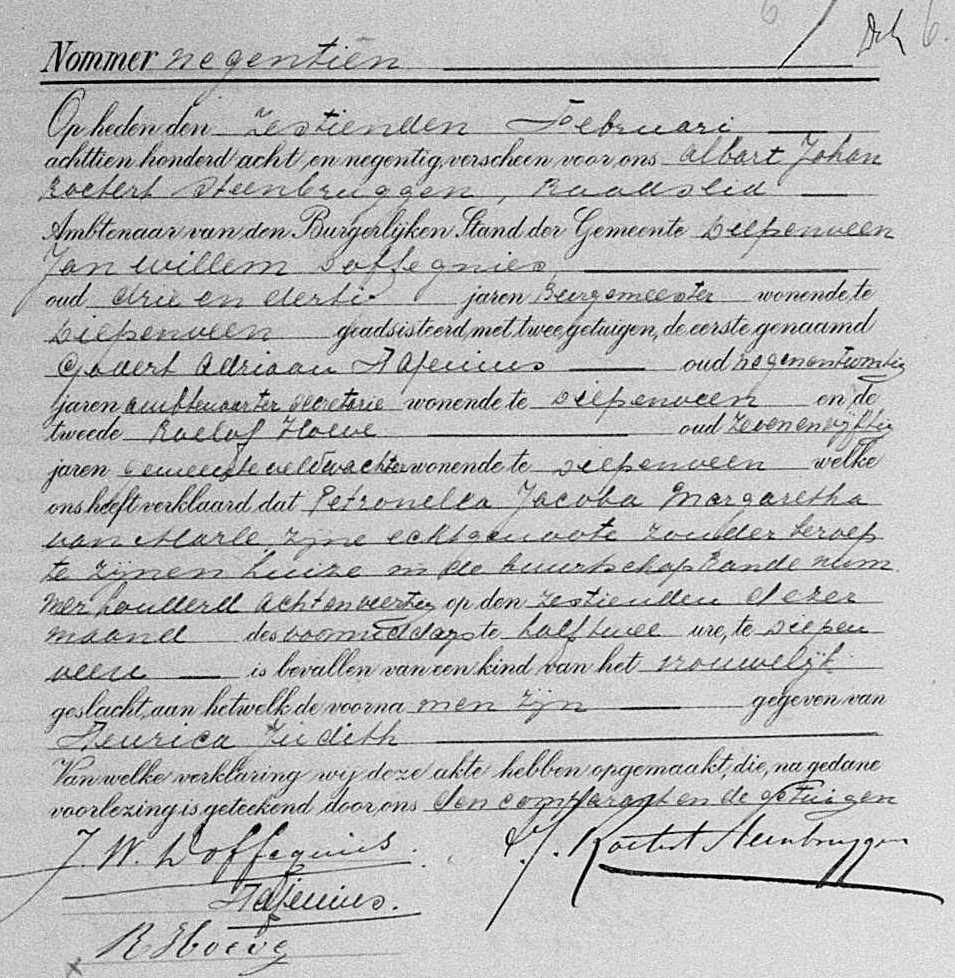 6
Nommer negentien
Op heden den zestienden Februari
achttien honderd acht en negentig, verscheen voor ons Albart Johan
Roetert Steenbruggen, Raadslid
Ambtenaar van den Burgerlijken Stand der Gemeente Diepenveen
Jan Willem Doffegnies,
oud drie en dertig jaren Burgemeester wonende te
Diepenveen geadsisteerd met twee getuigen, de eerste genaamd
Godert Adriaan Hafenius oud negenentwintig
jaren ambtenaar ter secretarie wonende te Diepenveen en de
tweede Roelof Hoeve oud zevenenvijftig
jaren gemeenteveldwachter wonende te Diepenveen welke
ons heeft verklaard, dat Petronella Jacoba Margaretha
van Marle, zijne echtgenoote zonder beroep
te zijnen huize in de buurtschap Rande num
mer honderd achtenveertig op den zestienden dezer
maand des voormiddags te half twee ure, te Diepen
veen is bevallen van een kind van het vrouwelijk
geslacht, aan hetwelk de voorna men zijn gegeven van
Henrica Judith
Van welke verklaring wij deze akte hebben opgemaakt, die, na gedane
voorlezing is geteekend door ons den comparant en de getuigen
J. W. Doffegnies. A. J. Roetert Steenbruggen
Hafenius.
R Hoeve